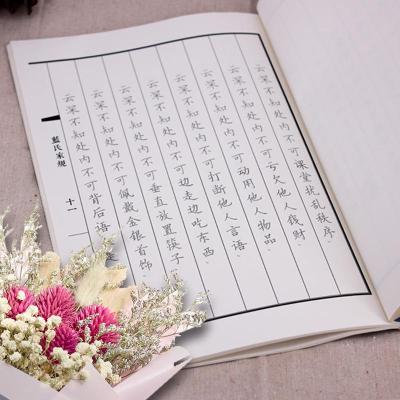 云深不知处内不可课堂扰乱秩序。
云深不知处内不可亏欠他人钱财。
云深不知处内不可动用他人物品。
云深不知处内不可打断他人言语。
云深不知处内不可边走边吃东西。
云深不知处内不可垂直放置筷子。
云深不知处内不可佩戴金银首饰。
云深不知处内不可背后语
藍氏家規
十一